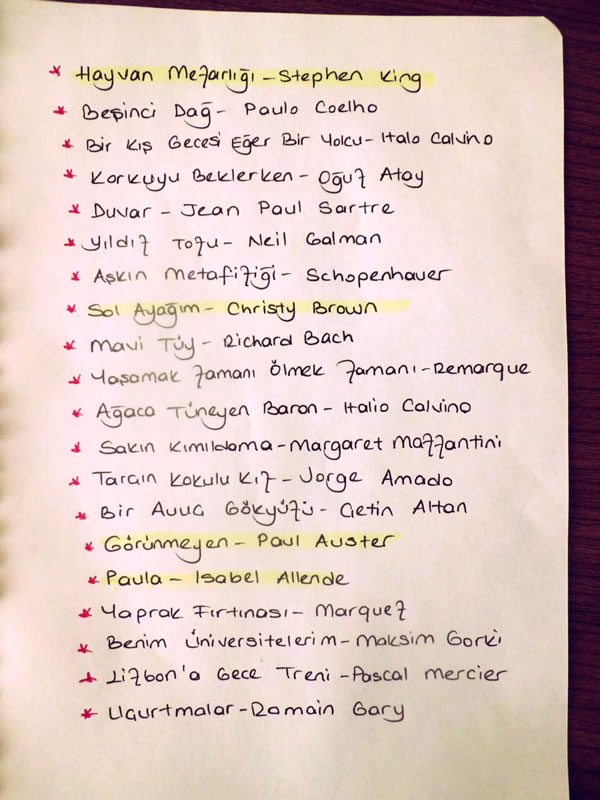 * Hayvan Mezarlığı - Stephen King
* Beşinci Dağ - Paulo Coelho
* Bir Kış Gecesi Eğer Bir Yolcu - Italo Calvino
* Korkuyu Beklerken - Oğuz Atay
* Duvar - Jean Paul Sartre
* Yıldız Tozu - Neil Gaiman
* Aşkın Metafiziği - Schopenhauer
* Sol Ayağım - Christy Brown
* Mavi Tüy - Richard Bach
* Yaşamak Zamanı Ölmek Zamanı - Remarque
* Ağaca Tüneyen Baron - Italio Calvino
* Sakın Kımıldama - Margaret Mazzantini
* Tarçın Kokulu Kız - Jorge Amado
* Bir Avuç Gökyüzü - Çetin Altan
* Görünmeyen - Paul Auster
* Paula - Isabel Allende
* Yaprak Fırtınası - Marquez
* Benim Üniversitelerim - Maksim Gorki
* Lizbon'a Gece Treni - Pascal Mercier
* Uçurtmalar - Romain Gary